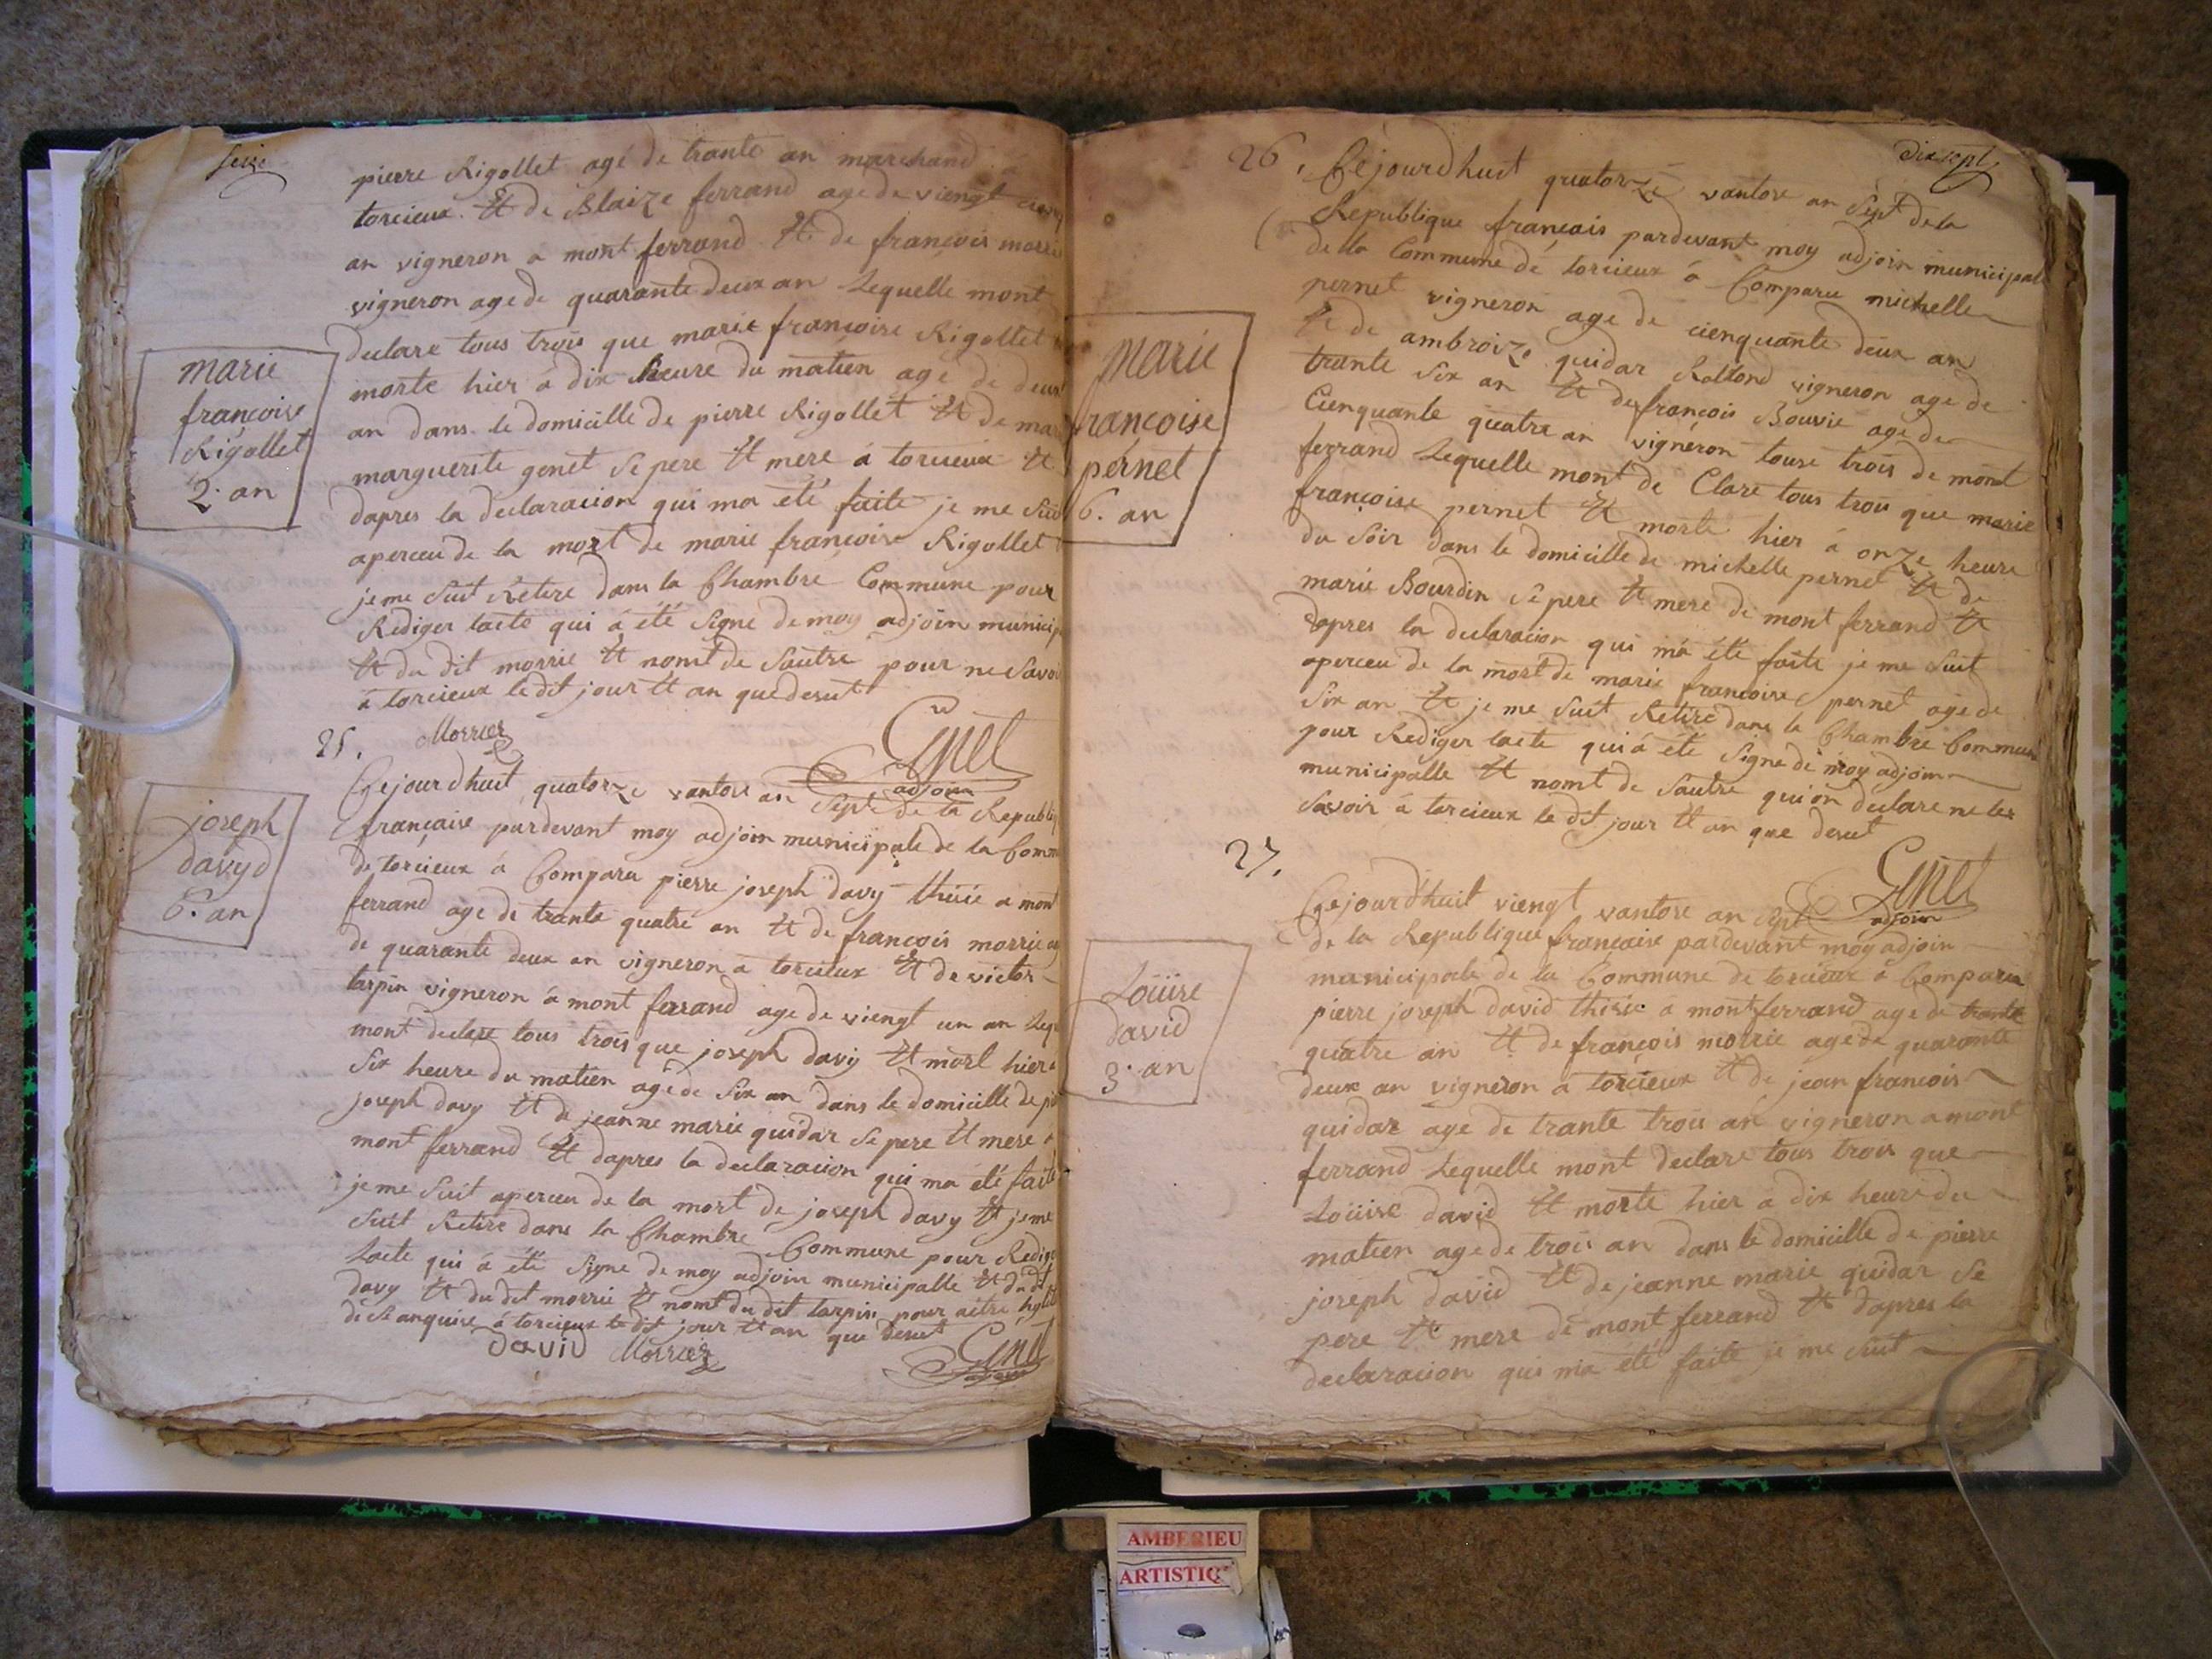 seize
pierre Rigollet agé de trante an marchand a
torcieux. Et de Blaize ferrand age de viengt
an vigneron a mont ferrand Et de francois morrie
vigneron age de quarante deux an Lequelle mont
declare tous trois que marie francoise Rigollet
morte hier á dix heure du matien agé de deux
an dans le domicille de pierre Rigollet Et de
marguerite genet Se pere Et mere á torcieux Et
dapres la declaracion qui ma été faite je me Suit
aperceu de la mort de marie francoise Rigollet
je me Suit Retire dans la Chambre Commune pour
Rediger lacte qui á été Signe de moy adjoin
Et du dit morrie Et nomt de Sautre pour ne Savoi
á torcieux le dit jour Et an que desut
Morrier
Genet
adjoin
marie
françoise
Rigollet
2. an
25.
Cejourdhuit quatorze vantose an Sept de la Republi
française pardevant moy adjoin municipale de la Comm
de torcieux á Comparu pierre joseph davy a mont
ferrand age de trante quatre an Et de francois morrie
de quarante deux an vigneron a torcieux Et de victor
tarpin vigneron á mont ferrand age de viengt un an
mont declare tous trois que joseph davy Et mort hier a
Six heure du matien agé de Six an dans le domicille de
joseph davy Et de jeanne marie guidar Se pere Et mere a
mont ferrand Et dapres la declaracion qui ma été faite
je me Suit aperceu de la mort de joseph davy Et je me
Suit Retire dans la Chambre Commune pour Redige
Lacte qui á été Signe de moy adjoin municipalle Et du dit
davy Et du dit morrie Et nomt du dit tarpin pour
de anquise á torcieux le dit jour Et an que desut
david Morrier
Genet
adjoin
joseph
davyd
6. an
dix sept
26.
Cejourdhuit quatorze vantose an Sept de la
Republique français pardevant moy adjoin municipal
de la Commune de torcieux á Comparu michelle
pernet vigneron age de cienquante deux an
Et de ambroize guidar vigneron age de
trante Six an Et de françois Bouvie age de
Cienquante quatre an vigneron touse trois de mont
ferrand Lequelle mont de Clare tous trois que marie
françoise pernet Et morte hier á onze heure
du Soir dans le domicille de michelle pernet Et de
marie Bourdin Se pere Et mere de mont ferrand Et
dapres la declaracion qui má été faite je me Suit
aperceu de la mort de marie francoise pernet agé de
Six an Et je me Suit Retire dans la Chambre Commune
pour Rediger lacte qui á été Signe de moy adjoin
municipalle Et nomt de Sautre qui on declare ne les
Savoir á torcieux le dit jour Et an que desut
Genet
adjoin
marie
françoise
pernet
6. an
27.
Cejourdhuit viengt vantose an Sept
de la Republique française pardevant moy adjoin
municipale de la Commune de torcieux á Comparu
pierre joseph david á mont ferrand age de trante
quatre an Et de françois morrie age de quarante
deux an vigneron a torcieux Et de jean francois
guidar age de trante trois an vigneron a mont
ferrand Lequelle mont declare tous trois que
Loüise david Et morte hier a dix heure du
matien age de trois an dans le domicille de pierre
joseph david Et de jeanne marie guidar Se
pere Et mere de mont ferrand Et dapres la
declaracion qui ma été faite je me Suit
Loüise
david
3. an
AMBERIEU
ARTISTIQ